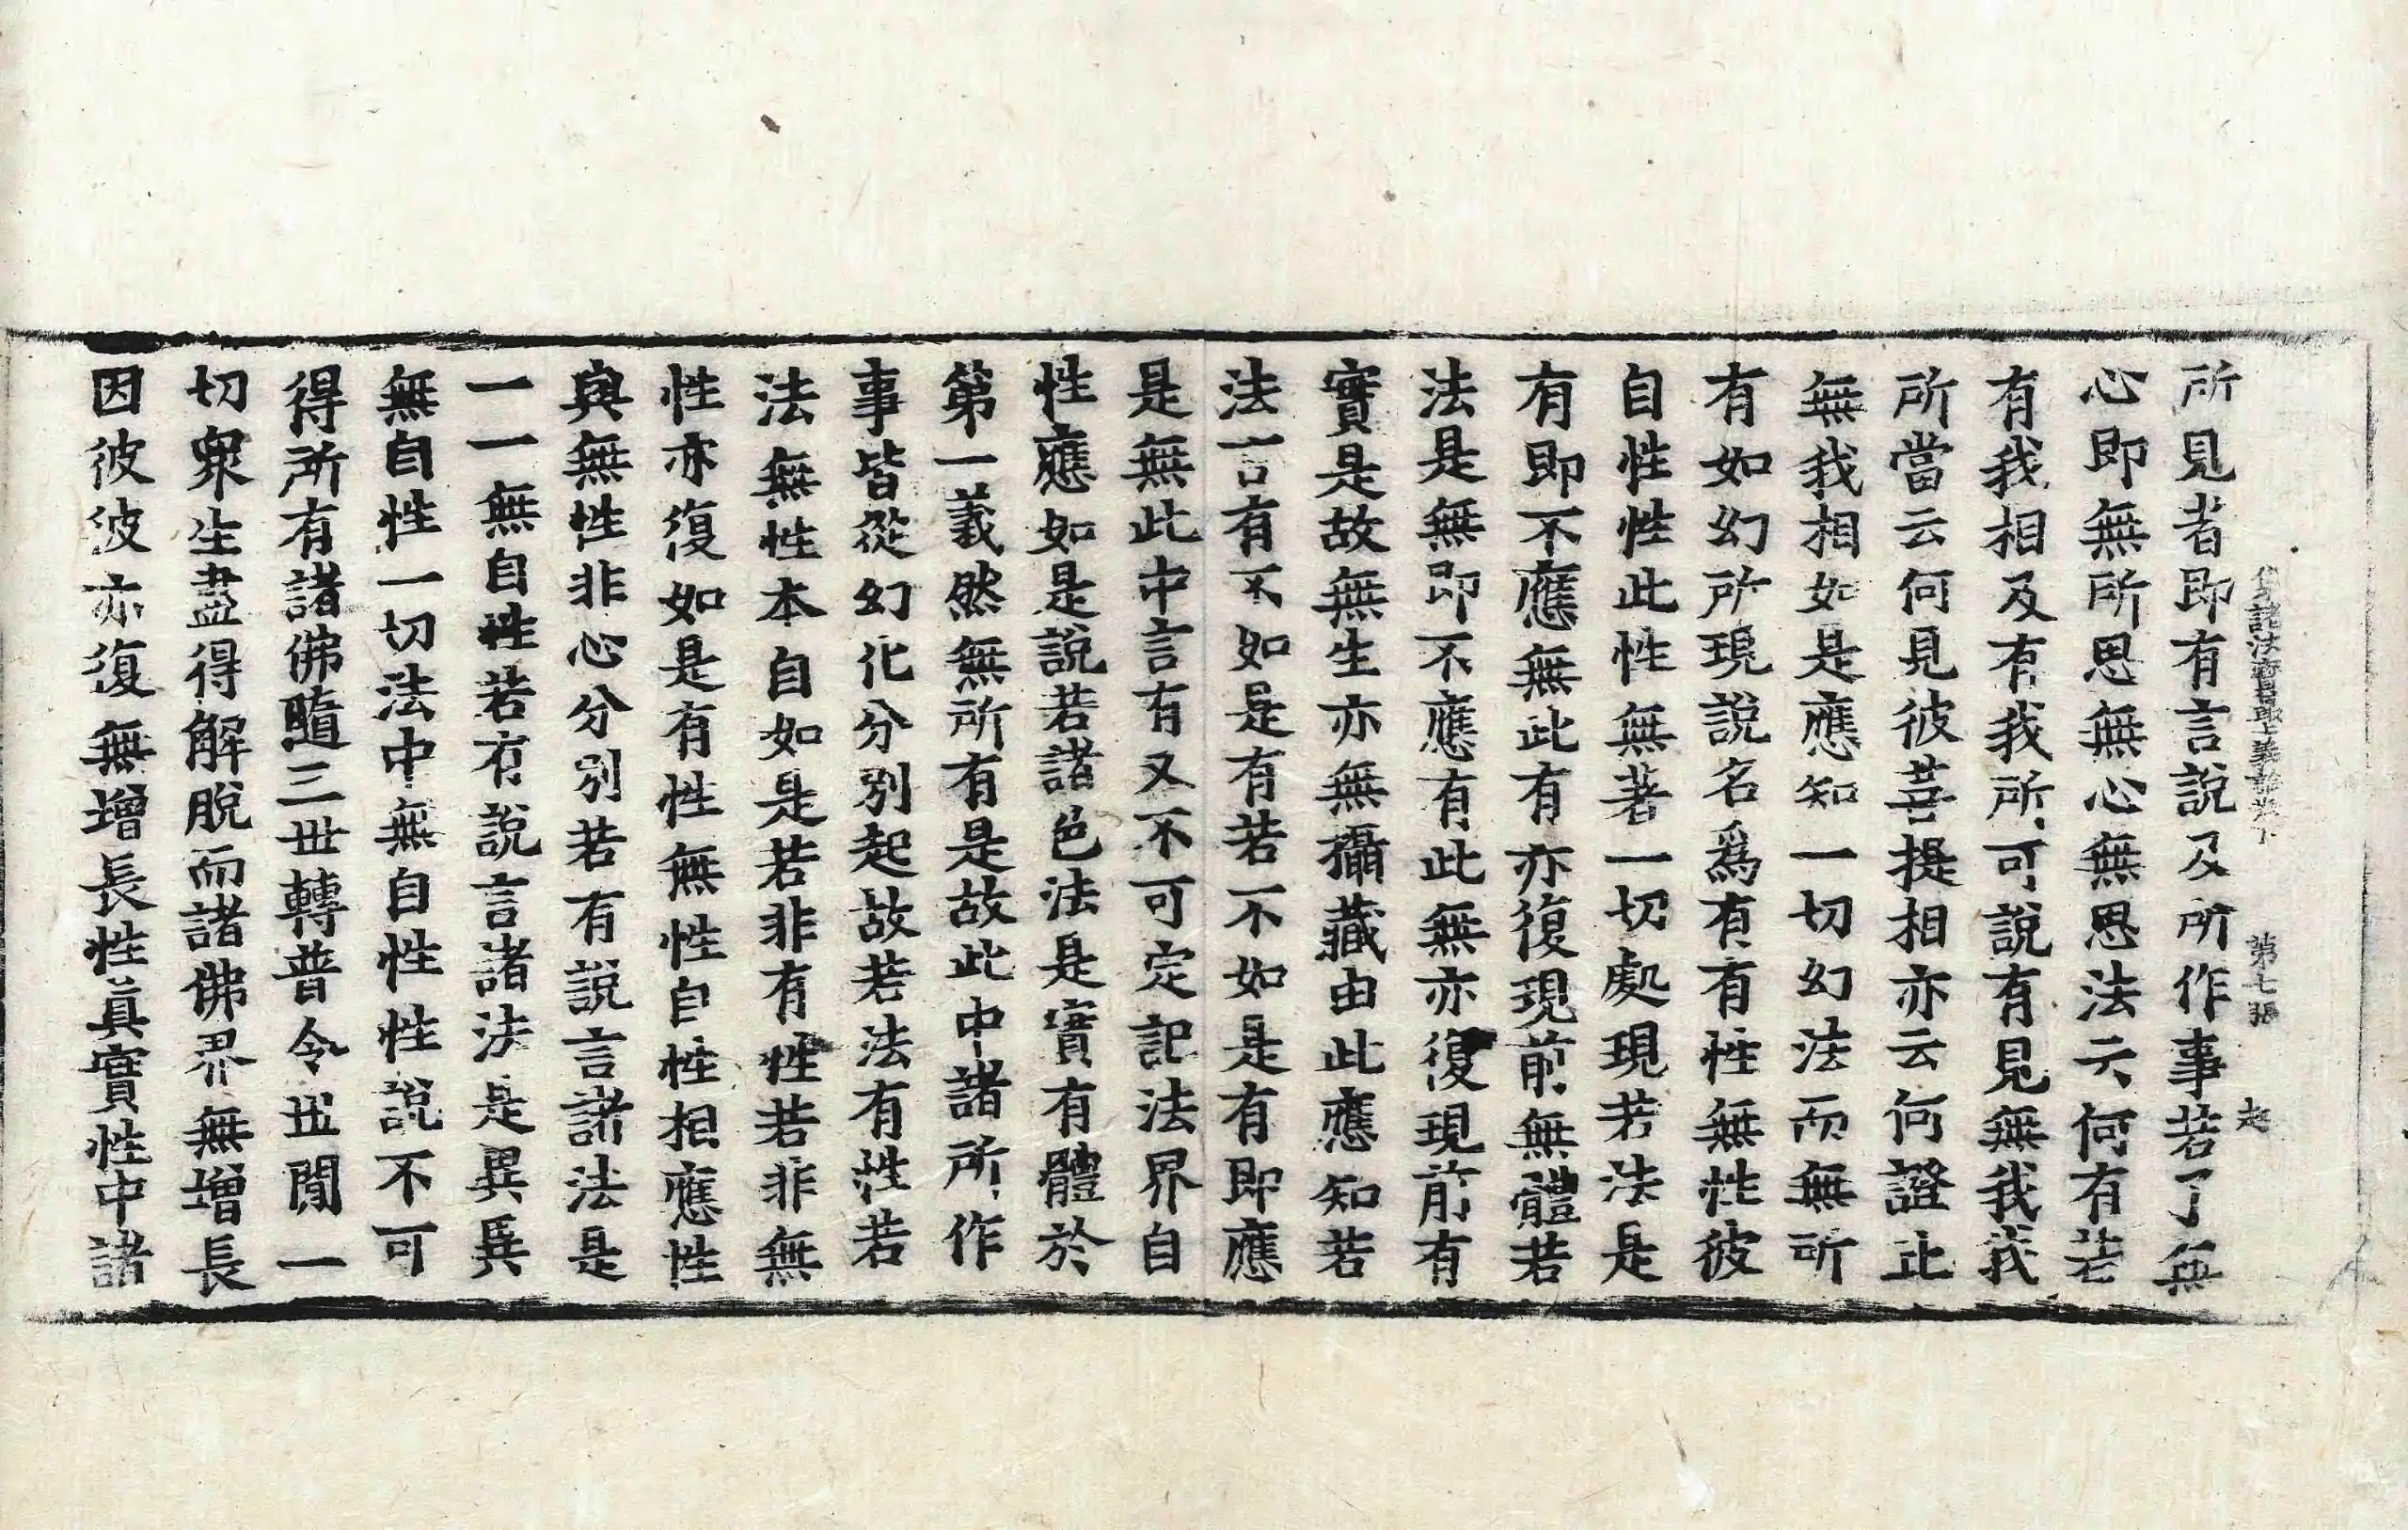 集諸法寶最上義論卷下 第七張 起
所見者即有言說及所作事若了無
心即無所思無心無思法云何有若
有我相及有我所可說有見無我我
所當云何見彼菩提相亦云何證止
無我相如是應知一切幻法而無所
有如幻所現說名爲有有性無性彼
自性性此性無著一切處現若法是
有即不應無此有亦復現前無體若
法是無即不應有此無亦復現前有
實是故無生亦無攝藏由此應知若
法言有不如是有若不如是有即應
是無此中言有又不可定記法界自
性應如是說若諸色法是實有體於
第一義然無所有是故此中諸所作
事皆從幻化分別起故若法有性若
法無性本自如是若非有性若非無
性亦復如是有性無性自性相應性
與無性非心分別若有說言諸法是
一一無自性若有說言諸法是異異
無自性一切法中無自性性說不可
得所有諸佛隨三世轉普令世間一
切衆生盡得解脫而諸佛界無增長
因彼彼亦復無增長性眞實性中諸